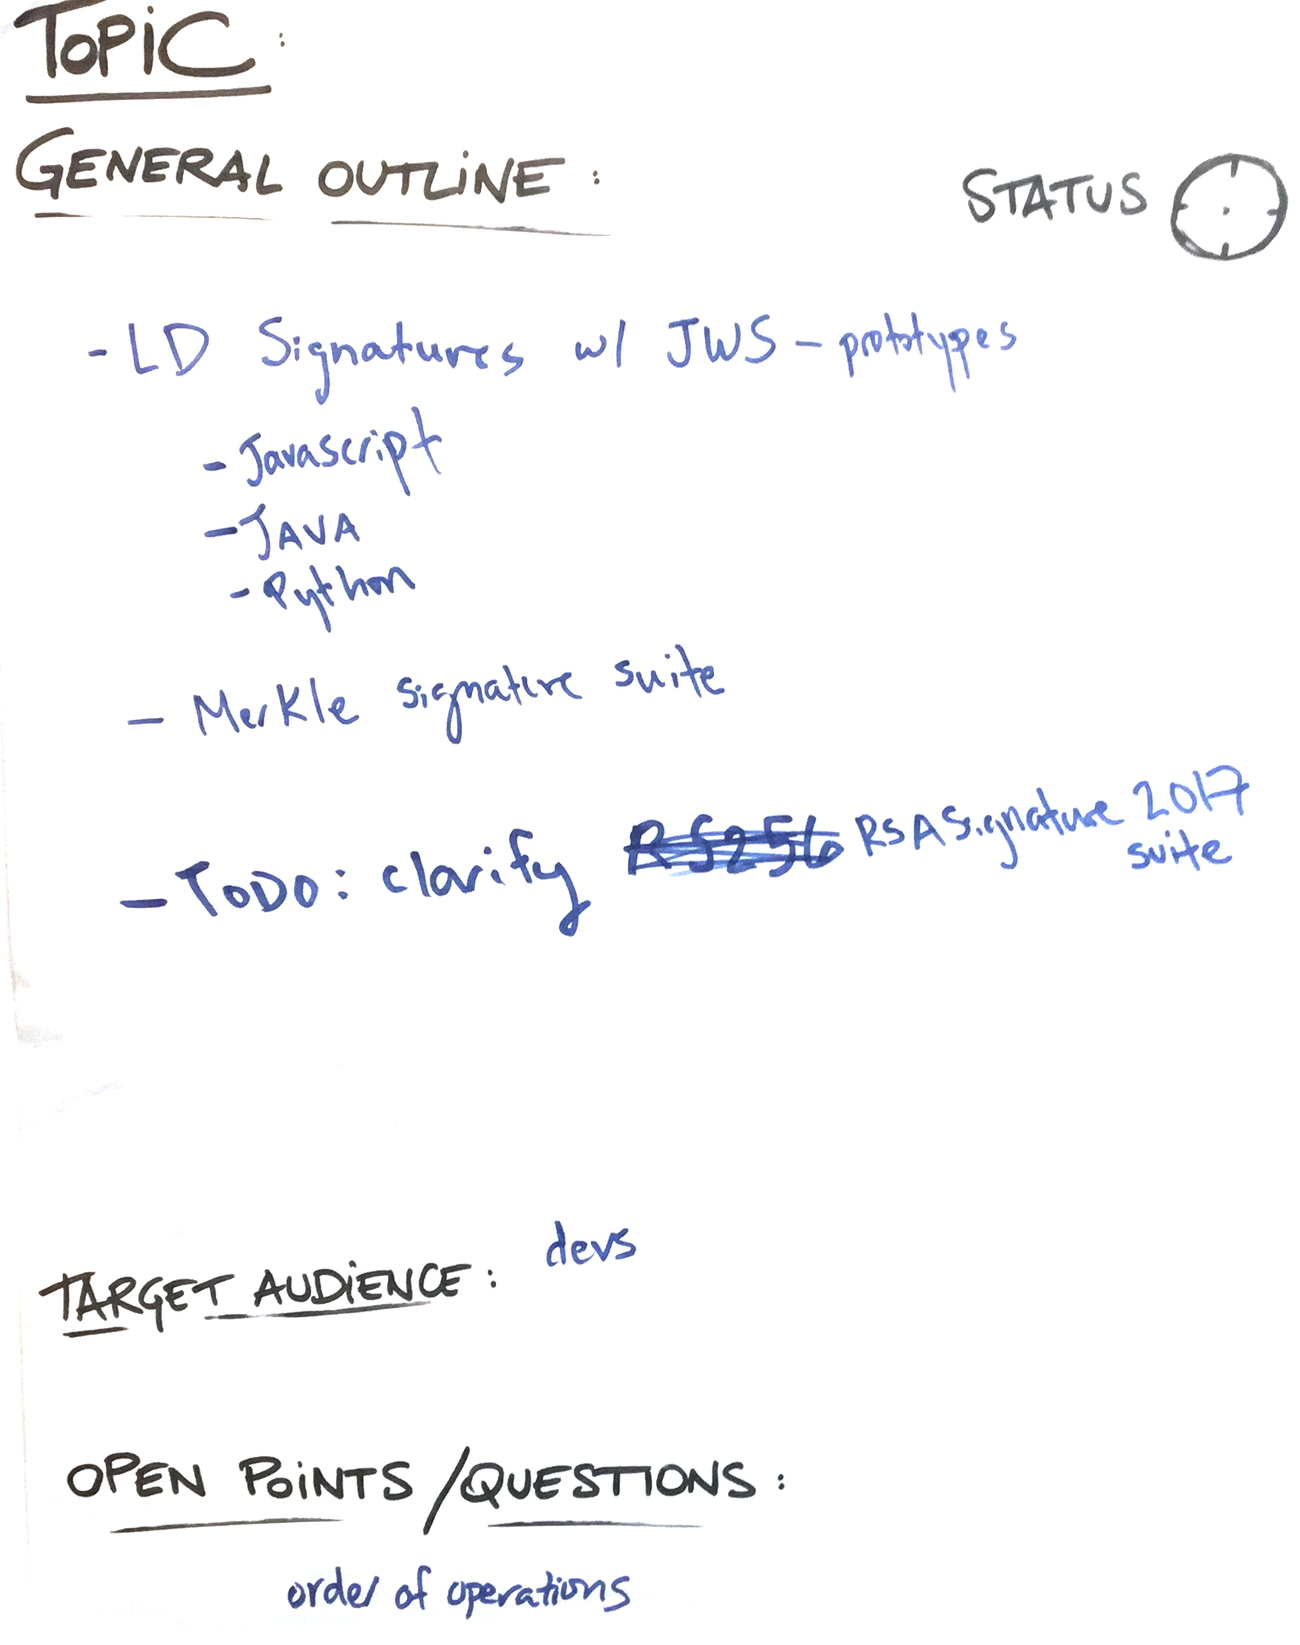 TOPIC :
GENERAL OUTLINE :
STATUS
- LD Signatures w/ JWS - prototypes
- Javascript
- JAVA
- Python
- Merkle signature suite
- TODO: clarify RS256 RSA Signature 2017
suite
TARGET AUDIENCE : devs
OPEN POINTS / QUESTIONS :
order of operations